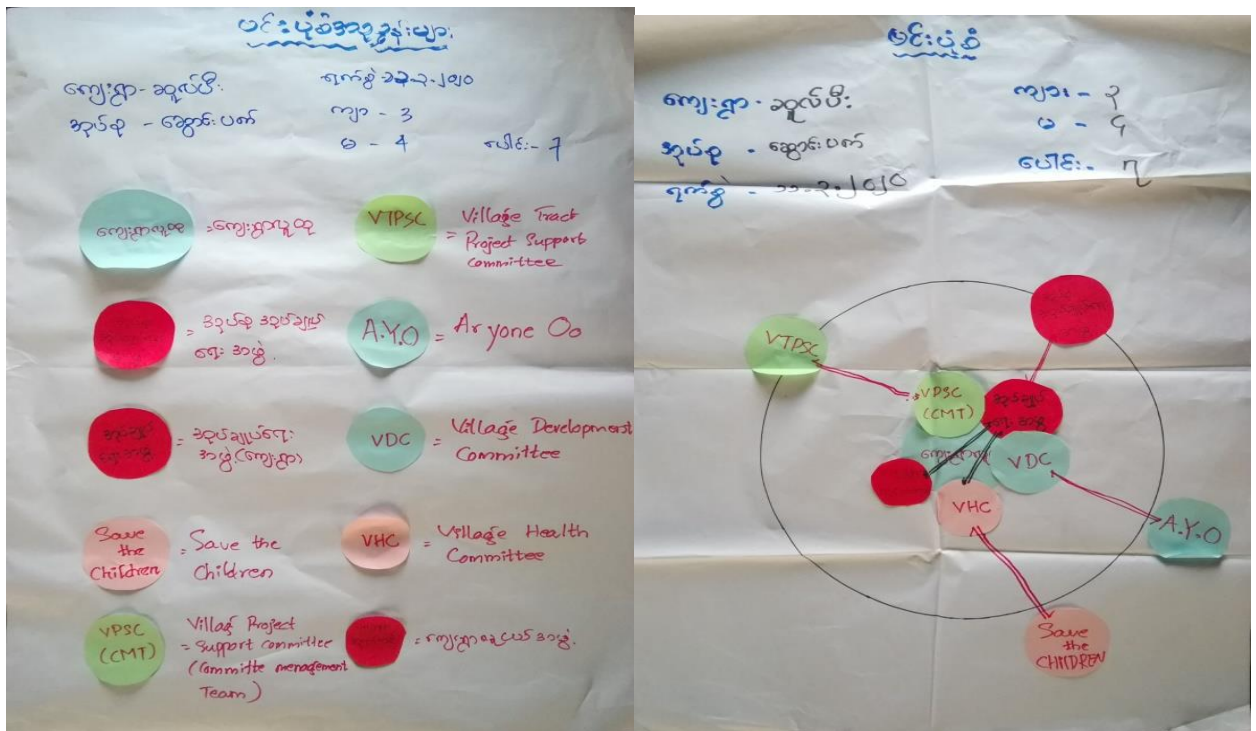 ဗင်းပုံစံအညွှန်းများ
ကျေးရွာ - ဆူလ်ပီး
အုပ်စု - ဆွောင်းပတ်
ရက်စွဲ
ကျာ - 3
မ - 4
ပေါင်း - 7
ကျေးရွာလူထု = ကျေးရွာလူထု
= အုပ်စု အုပ်ချုပ်
ရေး အဖွဲ့.
အုပ်ချုပ်
ရေးအဖွဲ့
= အုပ်ချုပ်ရေး
အဖွဲ့(ကျေးရွာ)
Save
the
Children
= Save the
Children
VPSC
(CMT)
Villag Project
= Support committee
(Committe menagement
Team)
VTPSC
= Village Tract
Project Support
Committee
A.Y.O = Ar yone Oo
VDC = Village Development
Committee
VHC = Village Health
Committee
ဗင်းပုံစံ
ကျေးရွာ - ဆူလ်ပီး
အုပ်စု - ဆွောင်းပတ်
ရက်စွဲ - ၁၁-၃-၂၀၂၀
ကျား - ၃
မ - ၄
ပေါင်း - ၇
VTPSC
VPSC
(CMT)
အုပ်ချုပ်
ရေးအဖွဲ့
VDC
VHC
A.Y.O
Save
the
CHILDREN